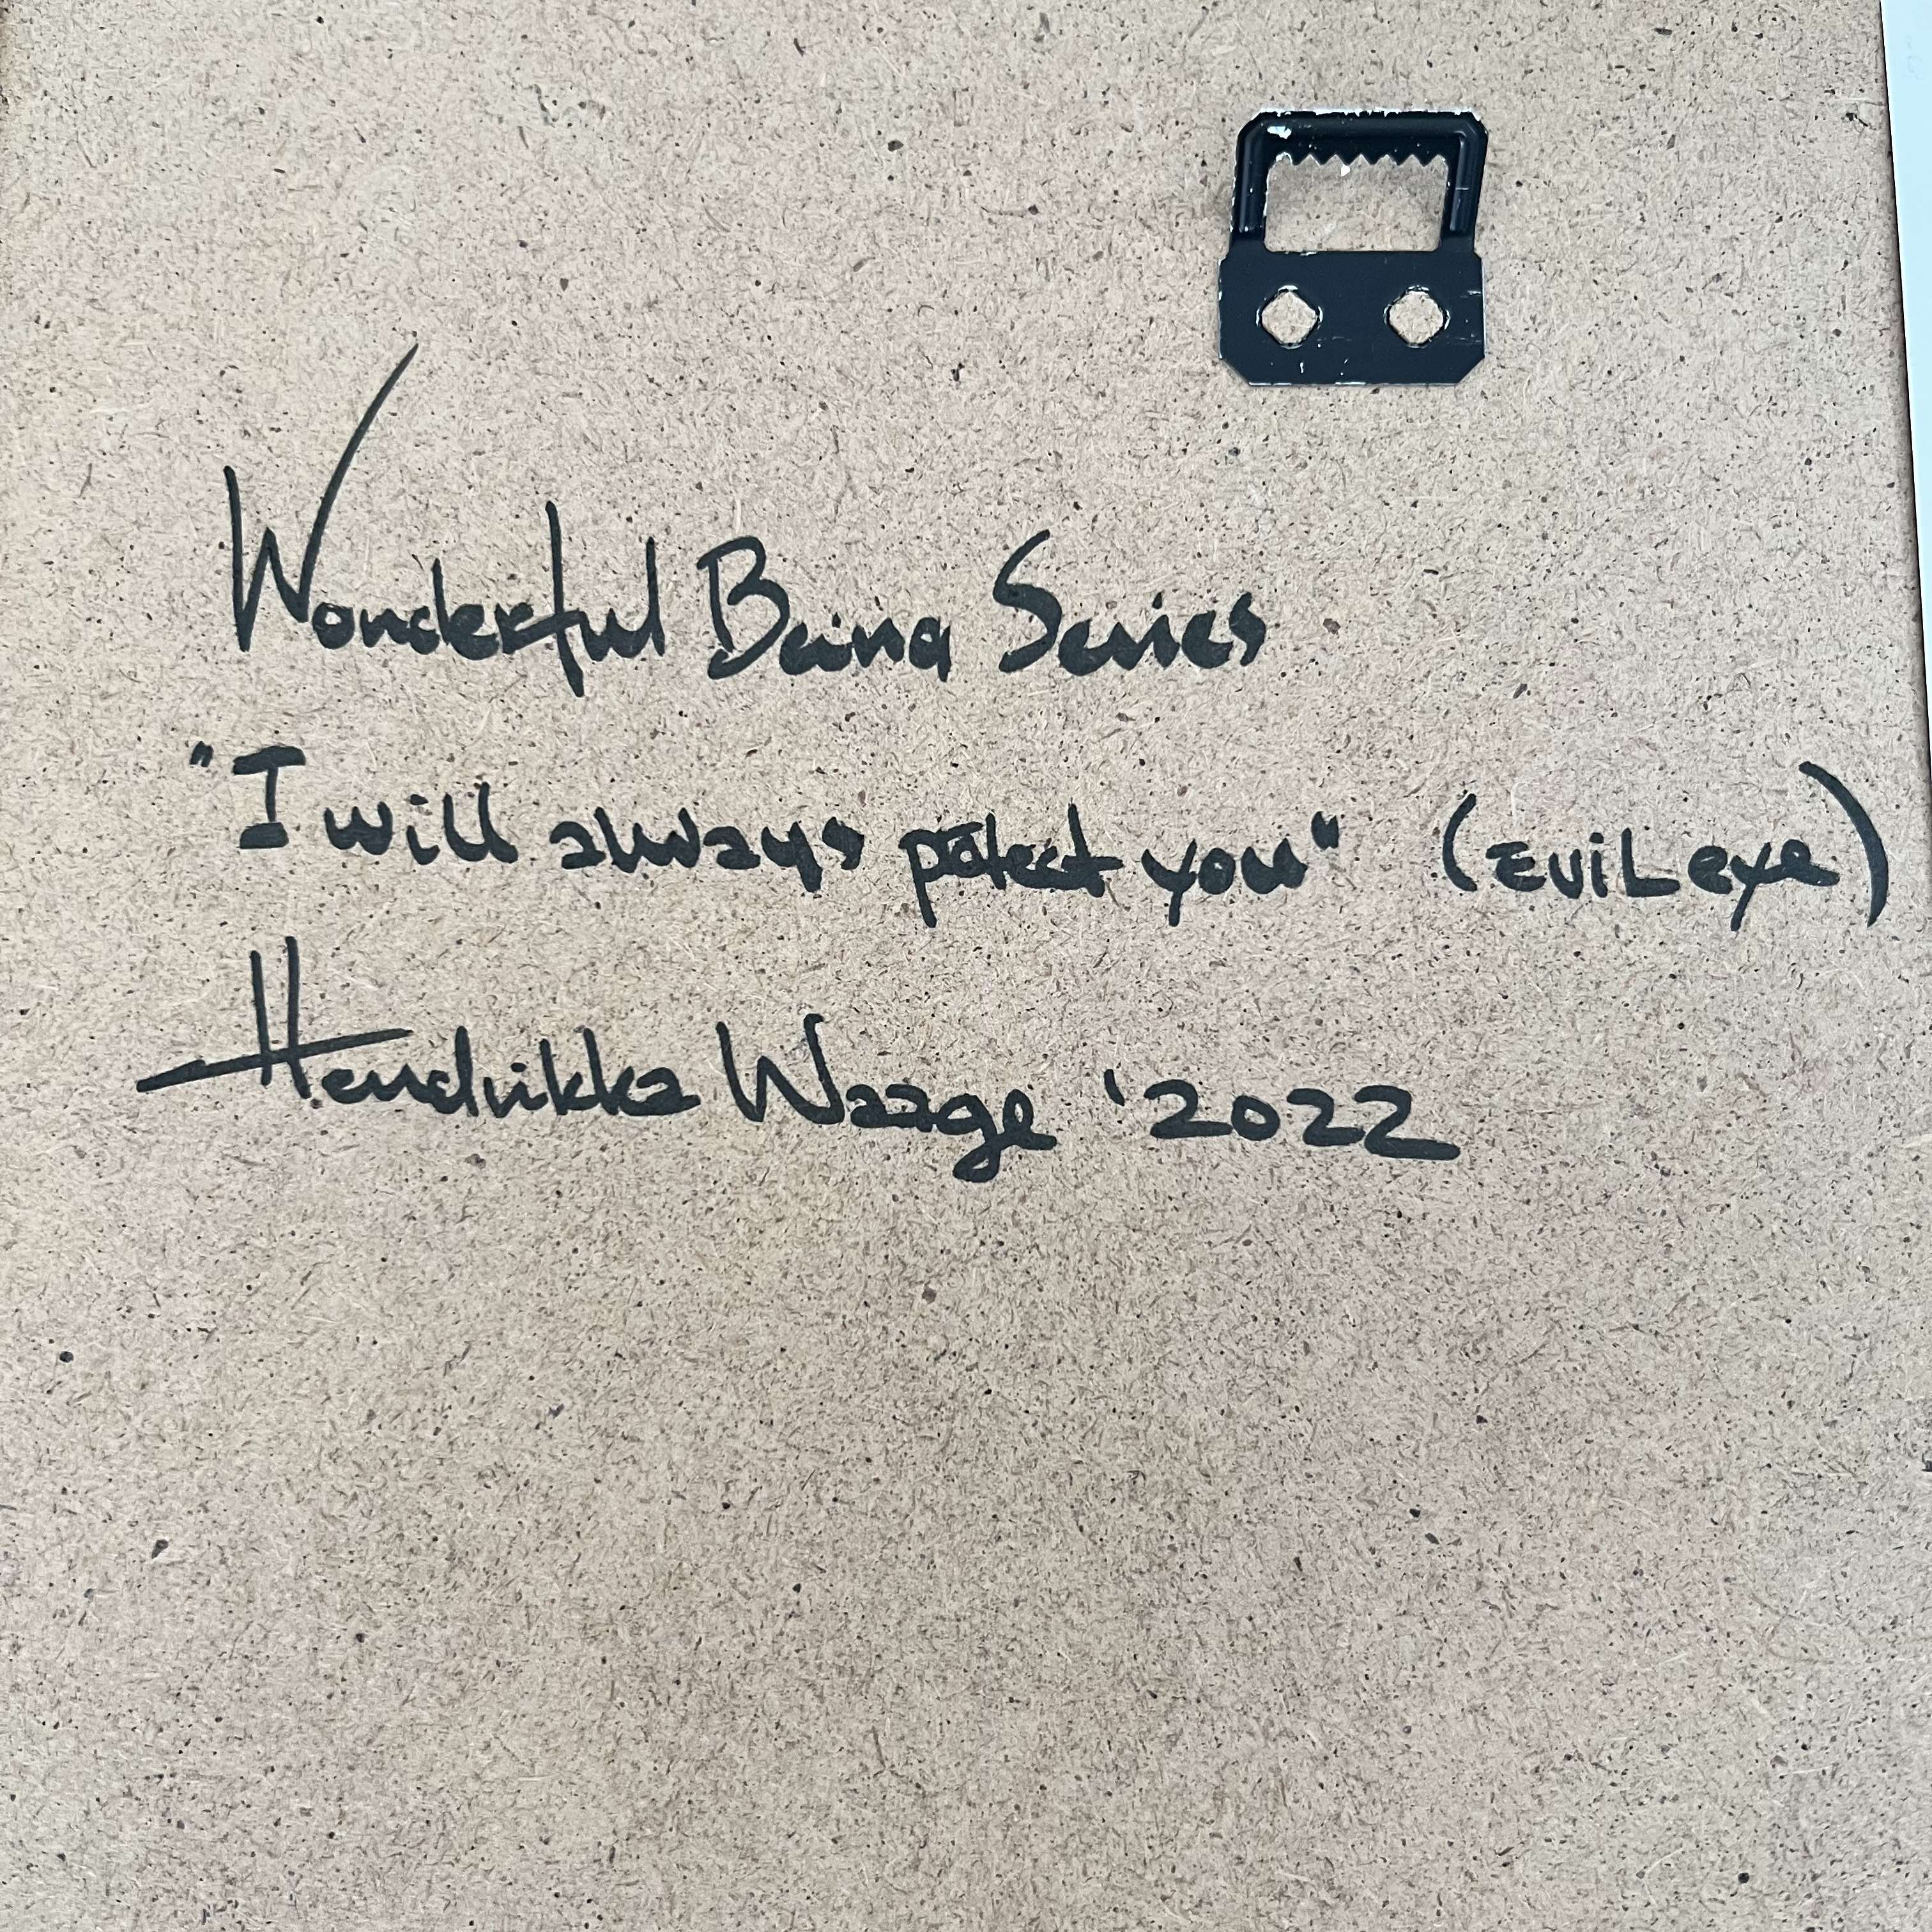 Wonderful Being Series
"I will always potect you" (Evil eye)
Hendrikka Waage '2022